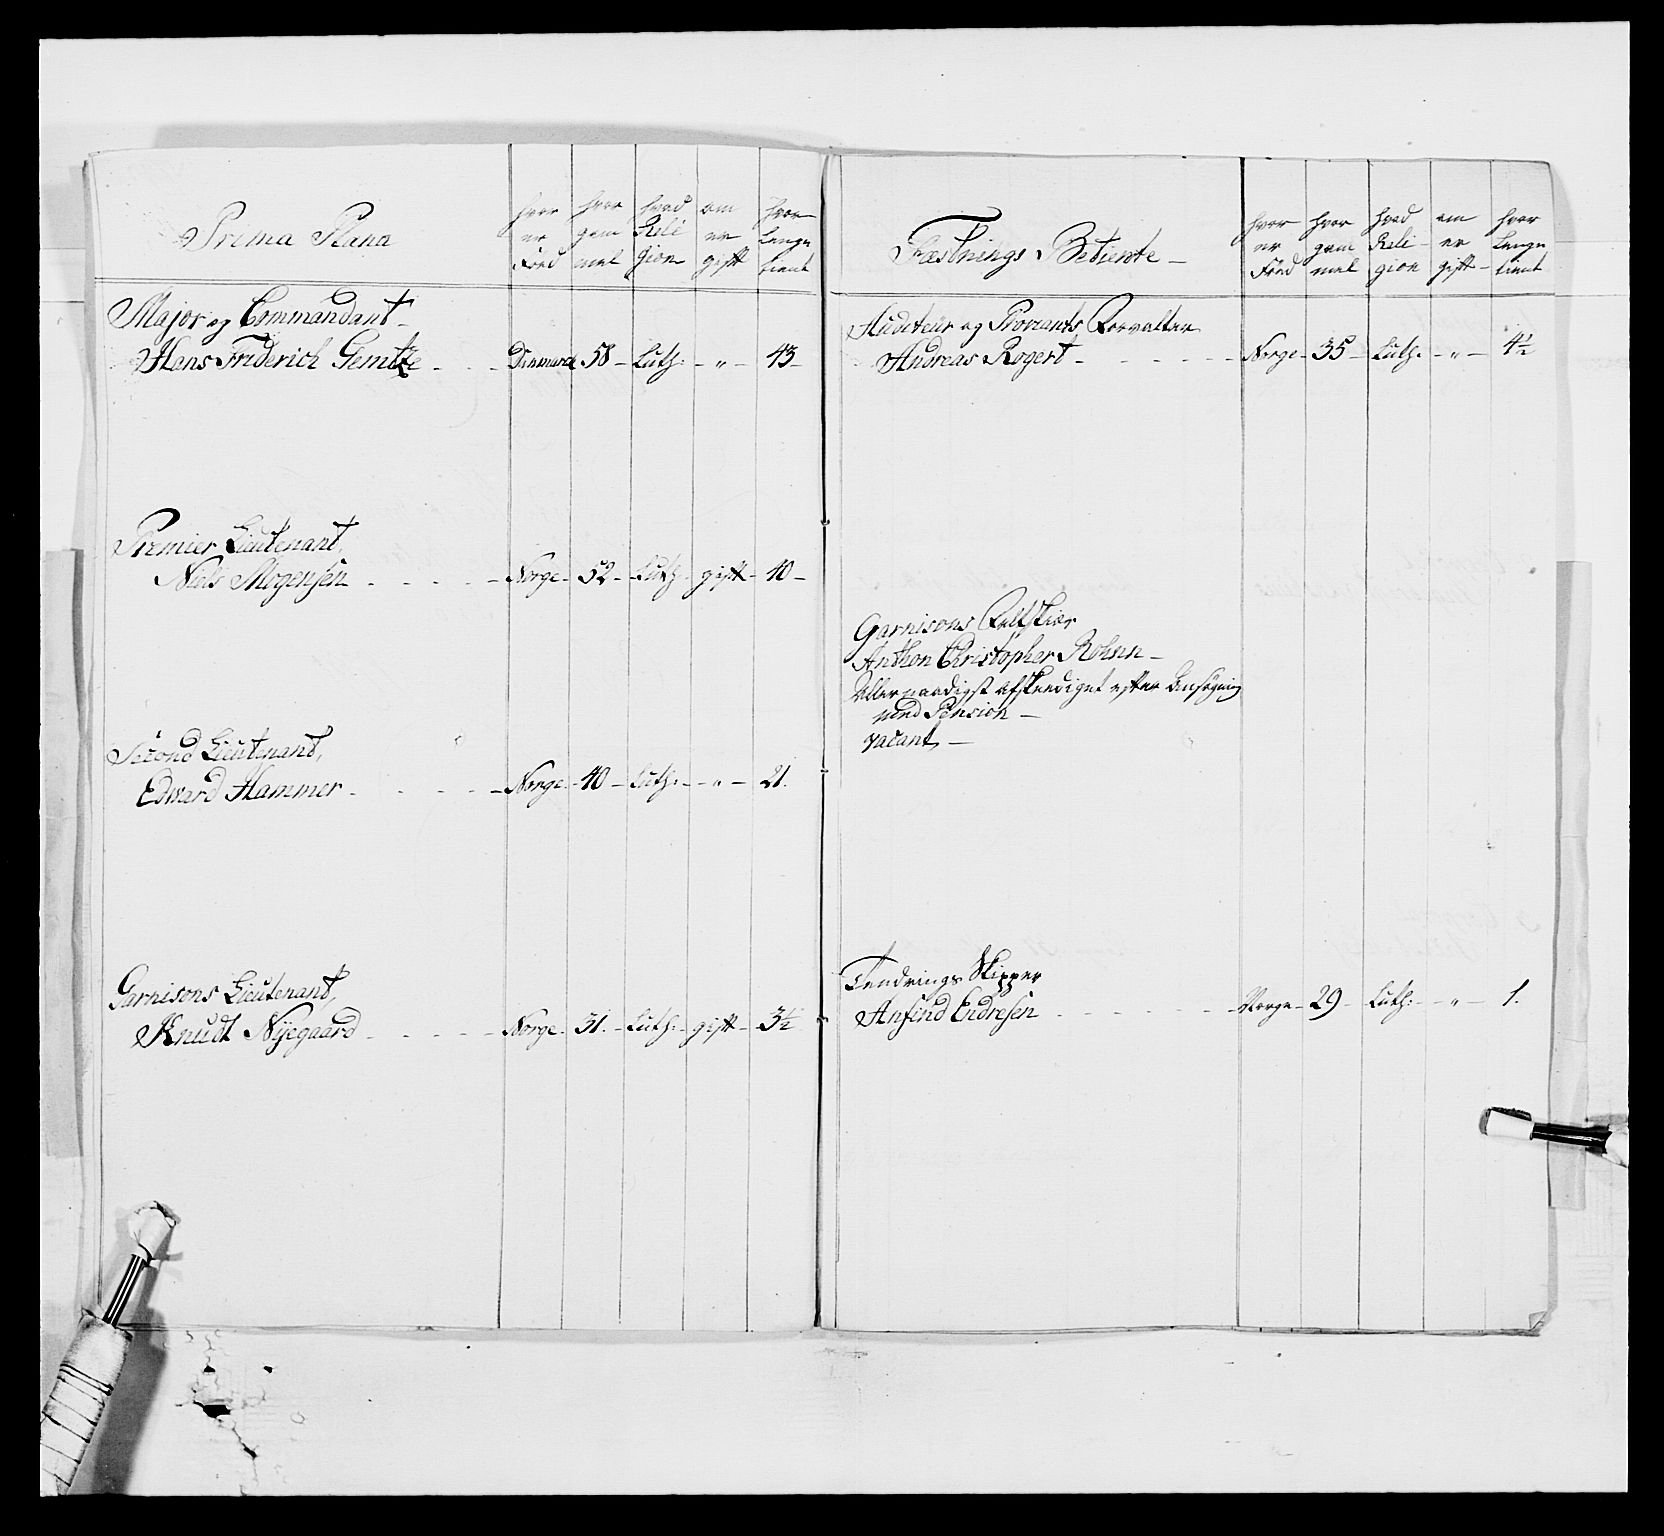 Prima Plana
hvor er Föed
hvor gam mel
hvad Reli gion
om er gift
hvor lenge tient
Major og Commandant
Hans Friderich Gemtze - - - Dinmarck 58 - Luth: - " - 43 -
Premier Lieutenant,
Niels Mogensen - - - - - Norge - 52 - Luth: gift - 40 -
Second Lieutenant,
Edward Hammer - - - - - Norge - 40 - Luth: - " - 21.
Garnisons Lieutenant,
Knudt Nÿegaard - - - - - Norge - 31. - Luth: - gift - 3½
Fæstnings Betiente -
hvor er Föed
hvor gam mel
hvad Reli- gion
om er gift
hvor lenge tient
Auditeur og Proviants Forvalter
Andreas Rogert - - - - - Norge - 35 - Luth: - " - 4½
Garnisons Feltskiær
Anthon Christopher Rohnn -
Allernaadigst afskediget efter Ansøgning
med Pension -
vacant, -
Tendrings Skipper
Anfind Endresen - - - - - Norge - 29 - Luth: - " - 1.